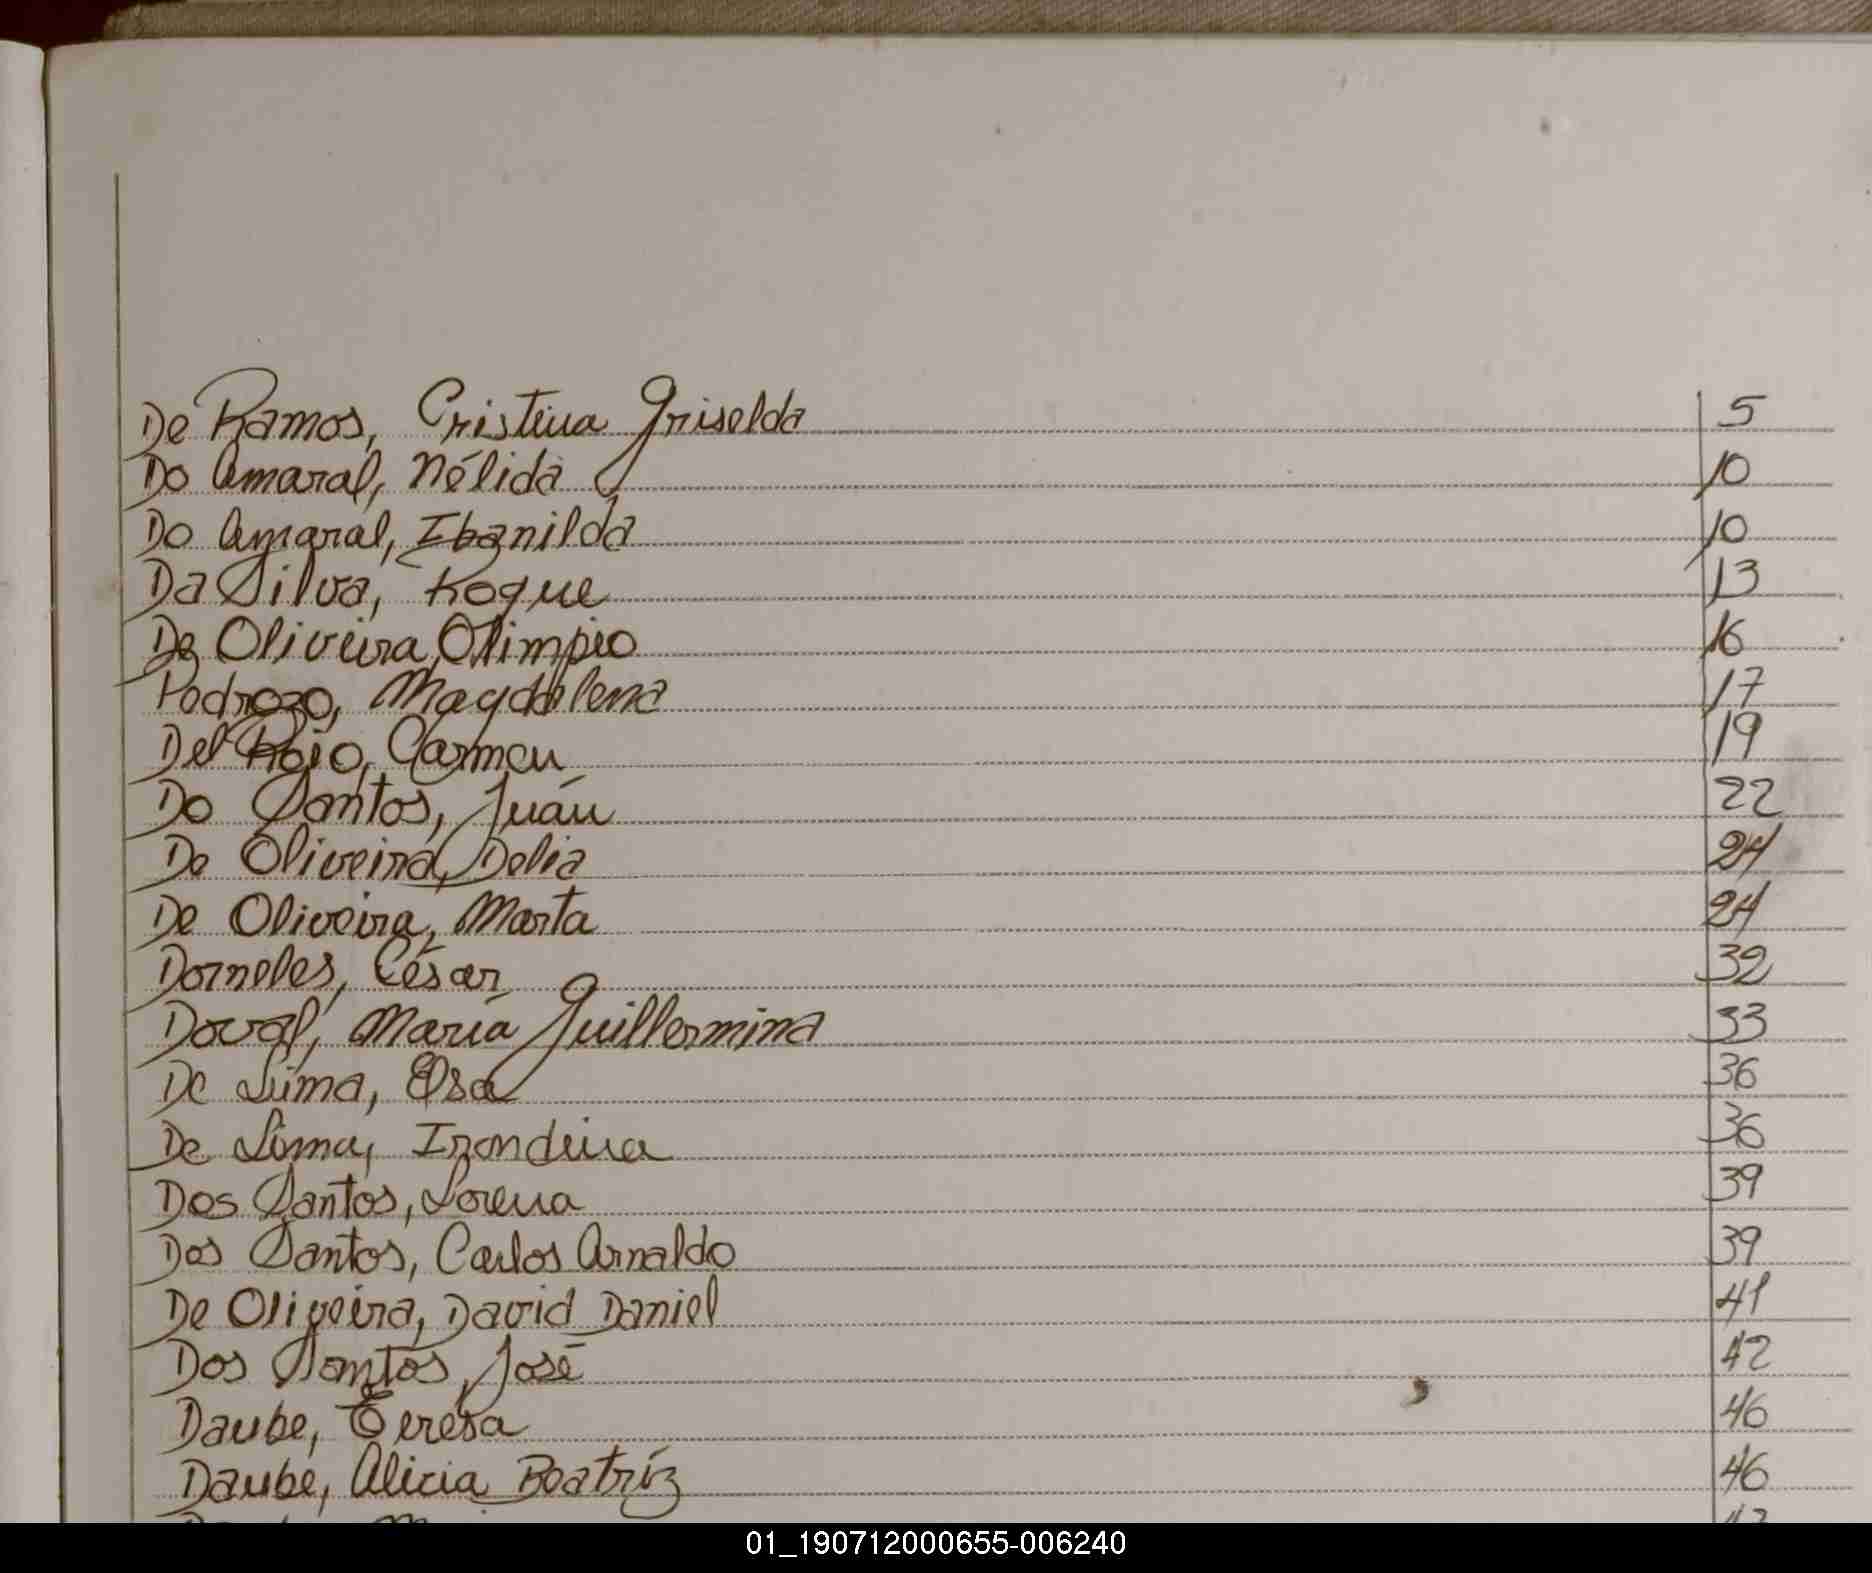 De Ramos, Cristina Griselda 5
Do Amaral, Nélida 10
Do Amaral, Ibanilda 10
Da Silva, Roque 13
De Oliveira, Olimpio 16
Pedrozo, Magdalena 17
Del Roio, Carmen 19
Do Santos, Juán 22
De Oliveira, Delia 24
De Oliveira, Marta 24
Dorneles, César 32
Doval, María Guillermina 33
De Lima, Elsa 36
De Lima, Irondina 36
Dos Santos, Lorena 39
Dos Santos, Carlos Arnaldo 39
De Oliveira, David Daniel 41
Dos Santos, José 42
Daube, Teresa 46
Daube, Alicia Beatríz 46
01_190712000655-006240